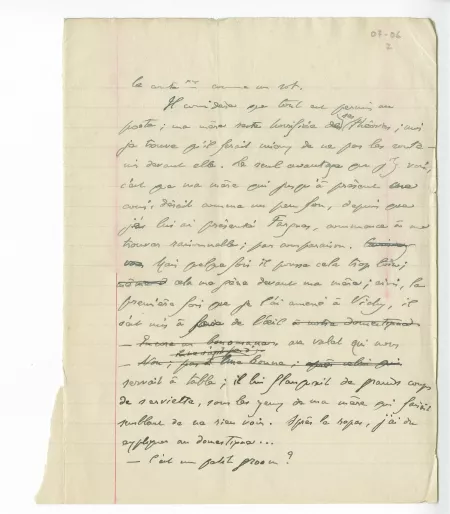 07-06
2
comme un sot.
Il considère que tout est permis au
poète ; ma mère reste horrifiée de ses théories ; moi
je trouve qu'il ferait mieux de ne pas les
devant elle. Le seul avantage que j'y vois,
c'est que ma mère qui jusqu'à présent
me trouvait comme un peu fou, depuis que
je lui ai présenté Fargue, commence à me
trouver raisonnable ; par comparaison.
Mais quelquefois il pousse cela trop loin ;
cela me gêne devant ma mère ; ainsi, la
première fois que je l'ai amené à Vichy, il
s'est mis à faire de l'œil à notre domestique
au valet qui nous
— Non ; pas à une bonne ; après celui qui
servait à table ; il lui flanquait de grands coups
de serviette, sous les yeux de ma mère qui faisait
semblant de ne rien voir. Après le repas, j'ai dû
expliquer au domestique...
— C'est un petit groom ?